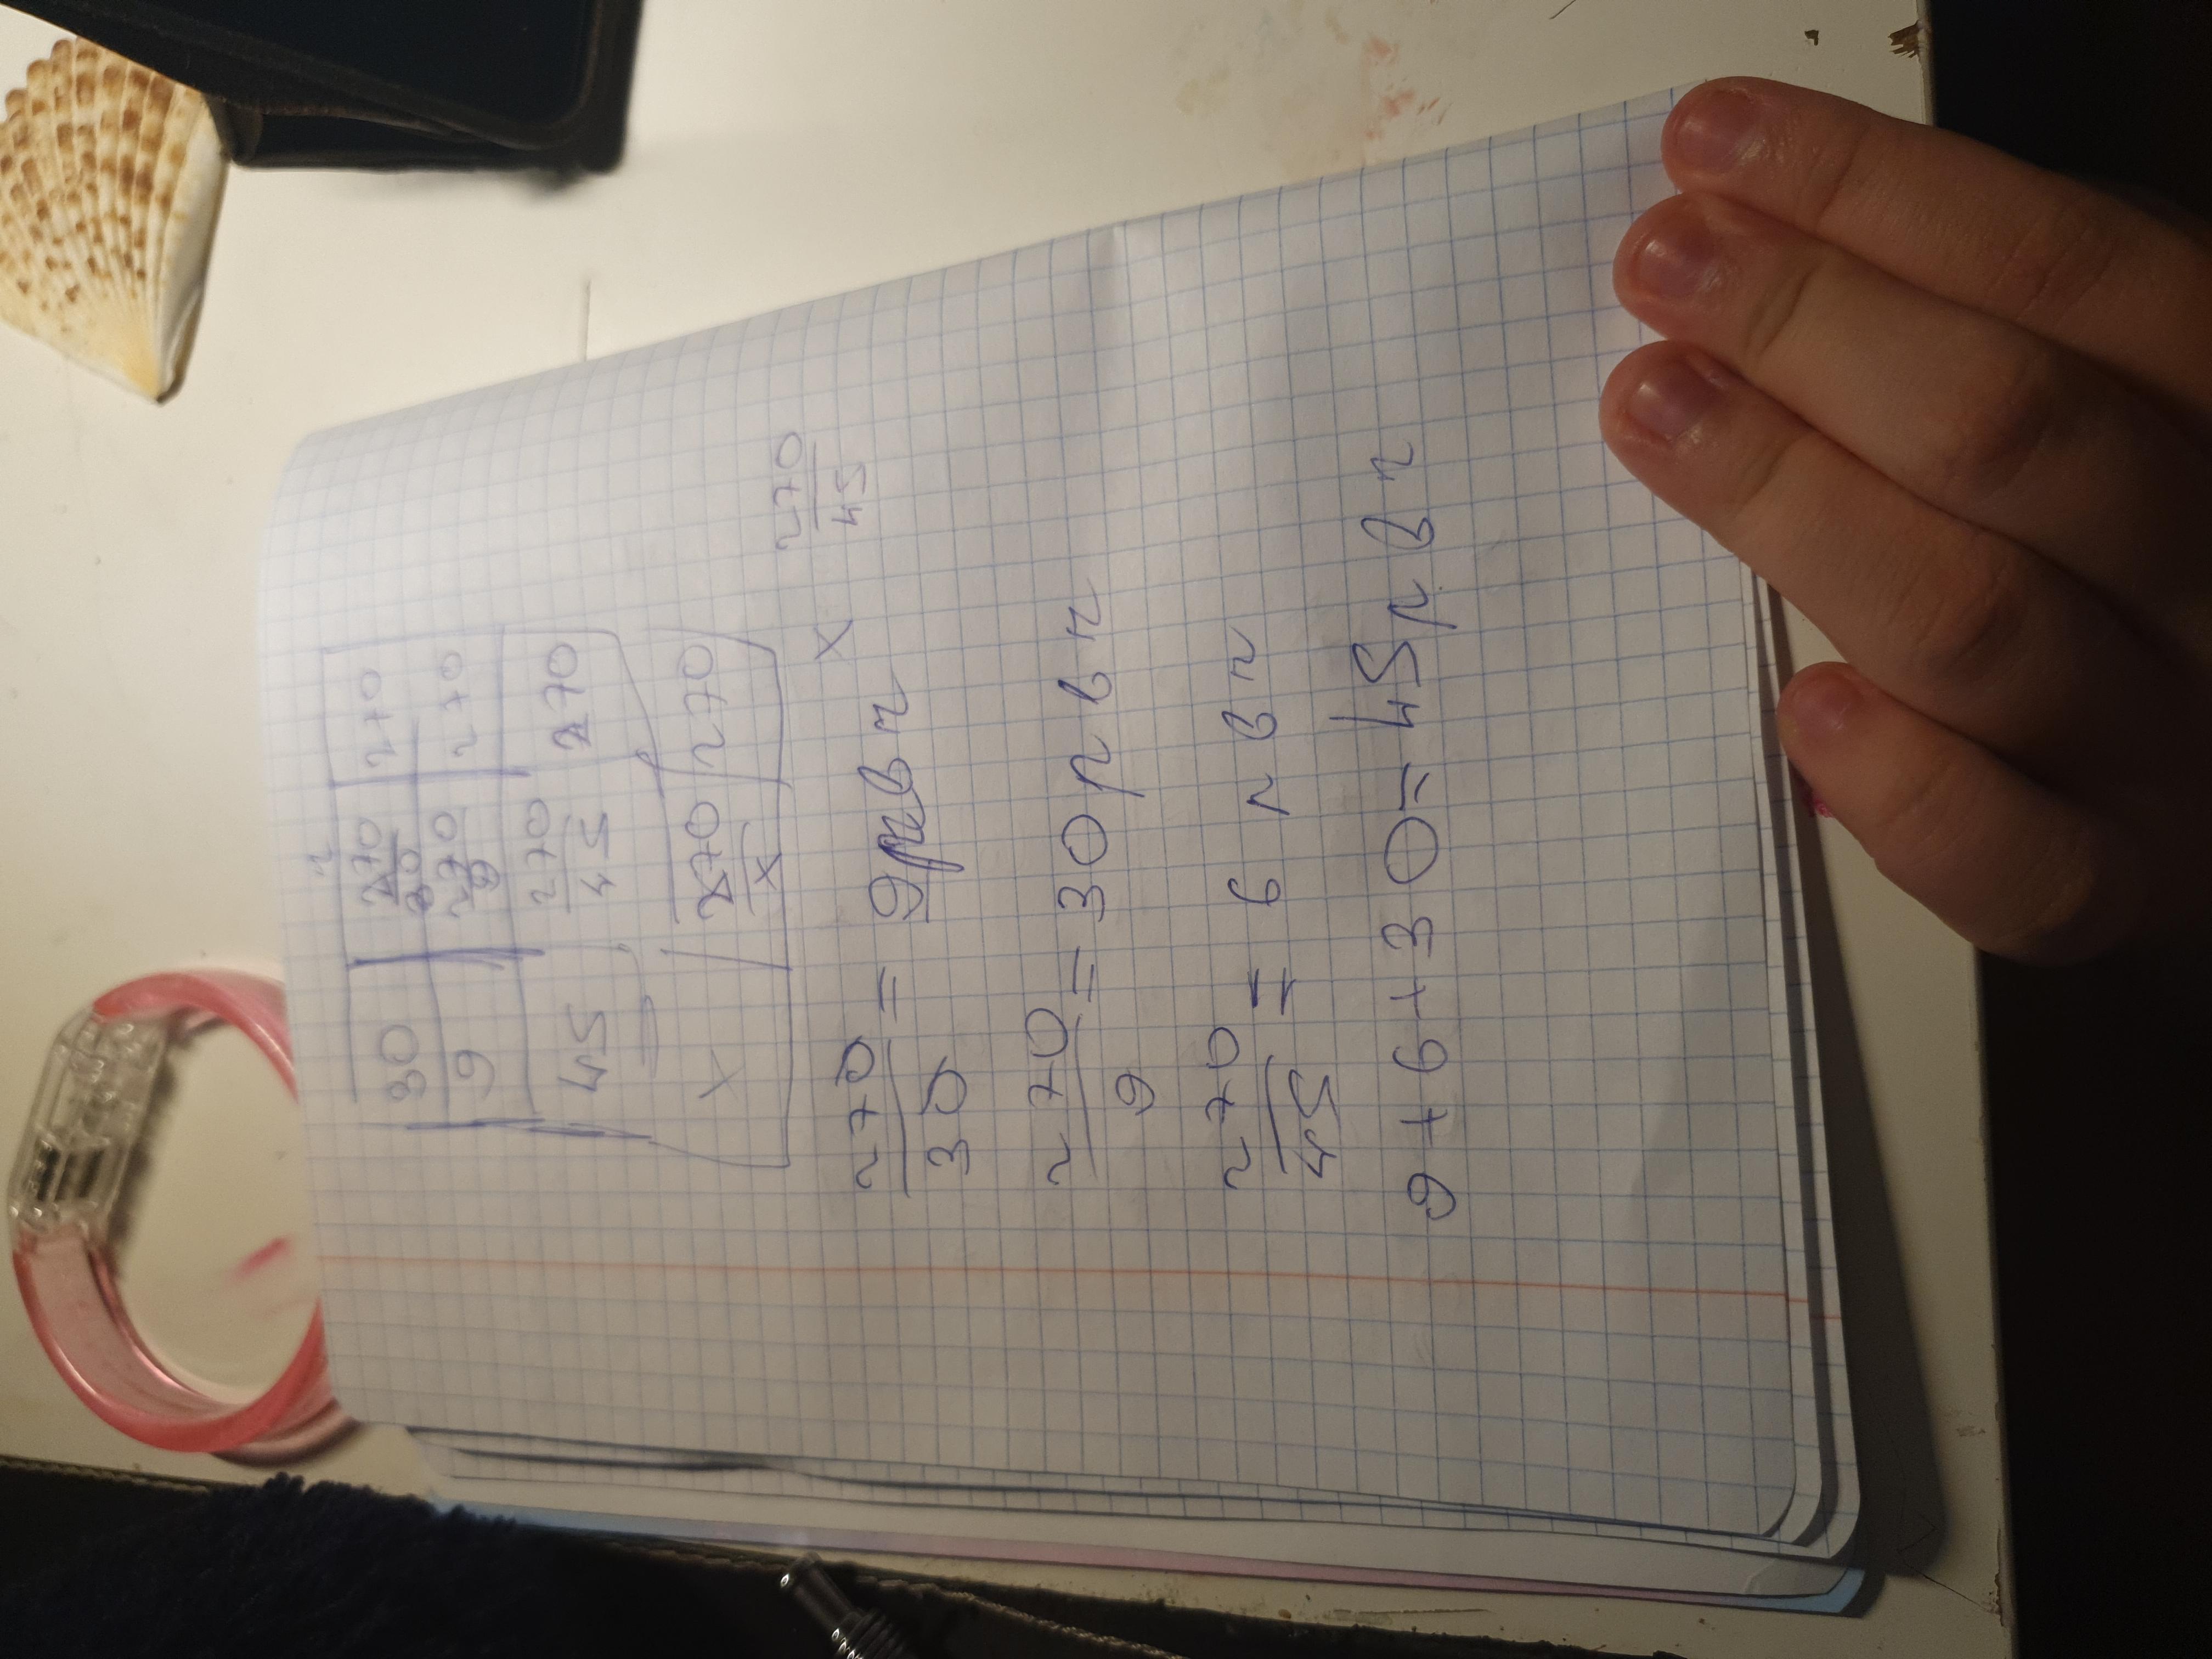 ч
30 270/30 270
9 270/9 270
45 270/45 270
x 270/x 270
x 270/45
270/30 = 9 р в ч
270/9 = 30 р в ч
270/45 = 6 р в ч
9 + 6 + 30 = 45 р в ч